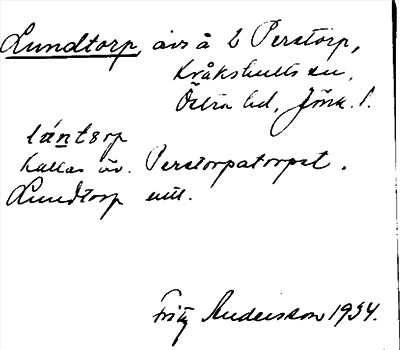 Lundtorp, avs å 2 Perstorp,
Kråkshults sn,
Östra hd, Jönk. l.
lántorp
kallas äv. Perstorpatorpet.
Lundtorp utt.
Fritz Andersson 1934.